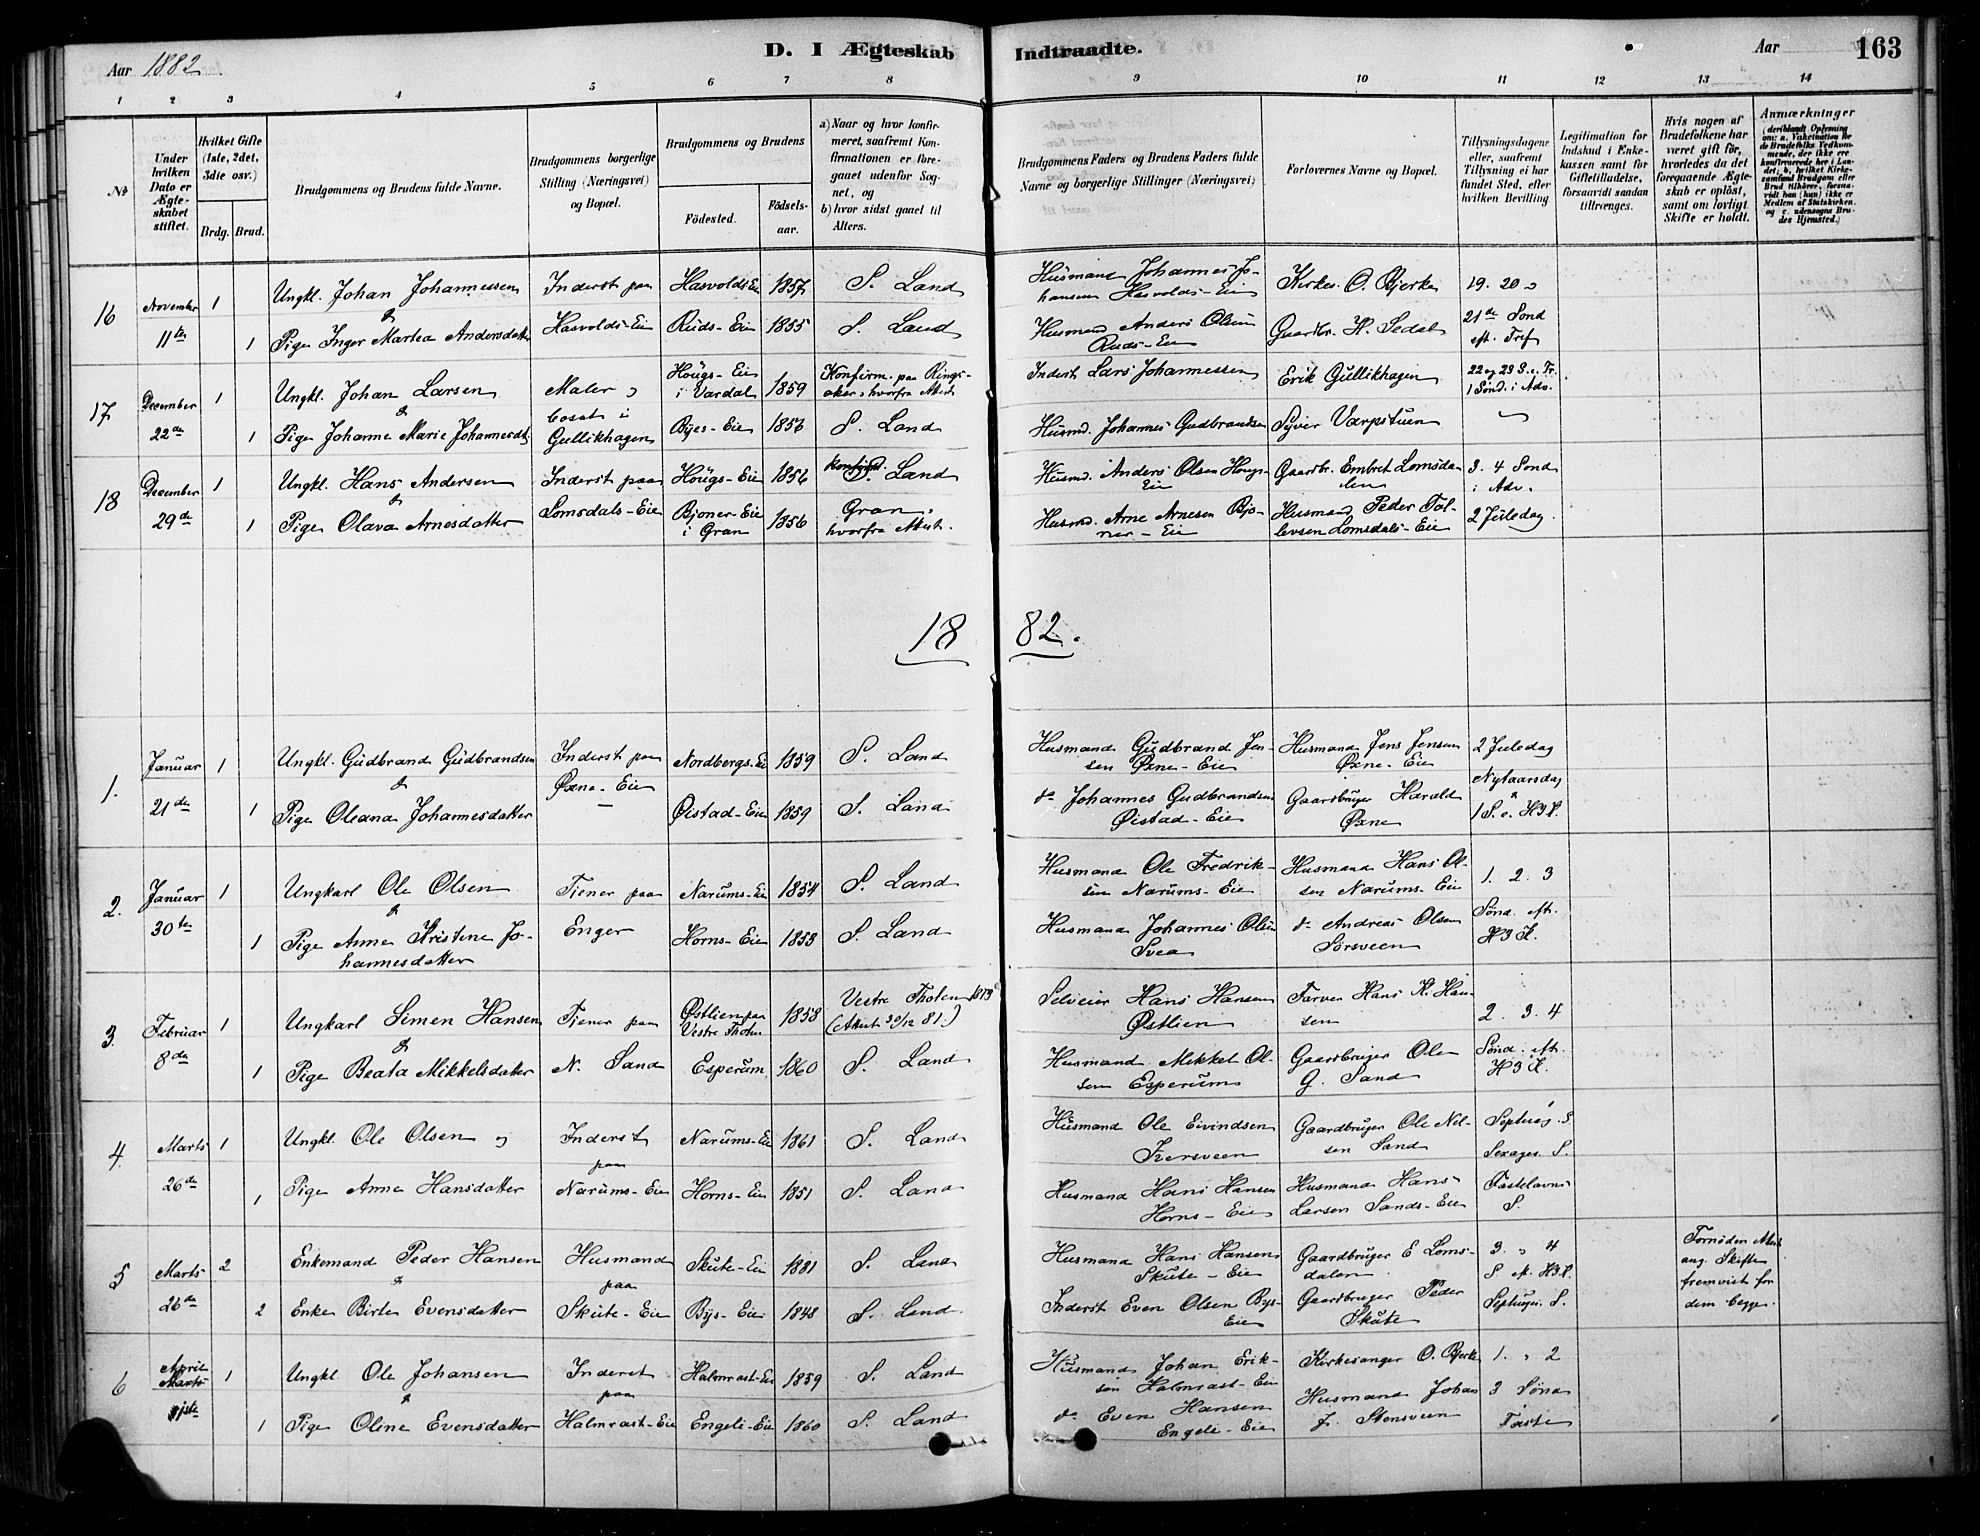 Aar 1882
D. I Ægteskab Indtraadte.
Aar
163
1 2 3 4 5 6 7 8 9 10 11 12 13 14
No
Under hvilken Dato er Ægteskabet stiftet.
Hvilket Gifte (1ste, 2det, 3die osv.)
Brdg. Brud.
Brudgommens og Brudens fulde Navne.
Brudgommens borgerlige Stilling (Næringsvei) og Bopæl.
Brudgommens og Brudens
Födested.
Födsels-aar.
a) Naar og hvor konfirmeret, saafremt Konfirmationen er foregaaet udenfor Sognet, og
b) hvor sidst gaaet til Alters.
Brudgommens Faders og Brudens Faders fulde Navne og borgerlige Stillinger (Næringsvei)
Forlovernes Navne og Bopæl.
Tillysningsdagene eller, saafremt Tillysning ei har fundet Sted, efter hvilken Bevilling.
Legitimation for Indskud i Enkekassen samt for Giftetilladelse, forsaavidt saadan tiltrænges.
Hvis nogen af Brudefolkene har været gift för, hvorledes da det foregaaende Ægteskab er oplöst, samt om lovligt Skifte er holdt.
Anmærkninger
16 November 11te 1 Ungkl. Johan Johannessen & Inderst paa Hasvolds-Eie Hasvolds Eie 1857 S. Land Husmand Johannes Johansen Hasvolds-Eie Kirkes. O. Bjerke 19. 20 og
1 Pige Inger Martea Andersdatter Ruds-Eie 1855 S. Land Husmand Anders Olsen Ruds-Eie Gaardbr. H. Sedal 21de Sønd eft. Tref
17 December 22de 1 Ungkl. Johan Larsen & Maler og bosat i Gullikhagen Hougs-Eie i Vardal 1859 Konfirm. paa Ringsaker, hvorfra Attest Inderst Lars Johannessen Erik Gullikhagen 22 og 23 S. e. Tr. 1 Sønd. i Adv.
1 Pige Johanne Marie Johannesdt. Byes-Eie 1856 S. Land Husmd. Johannes Gudbrandsen Syver Værpstuen
18 December 29de 1 Ungkl. Hans Andersen & Inderst paa Lomsdals-Eie Hougs-Eie 1856 S. Land Husmd. Anders Olsen Hougs-Eie Gaardbr. Embret Lomsdalen 3. 4 Sønd i Adv.
1 Pige Olava Arnesdatter Bjoner-Eie i Gran 1856 Gran, hvorfra Attest. Husmd. Arne Arnesen Bjoner-Eie Husmand Peder Tollevsen Lomsdals-Eie 2 Juledag.
1882.
1. Januar 21de 1 Ungkl. Gudbrand Gudbrandsen & Inderst paa Øxne-Eie Nordbergs-Eie 1859 S. Land Husmand Gudbrand Jensen Øxne-Eie Husmand Jens Jensen Øxne-Eie 2 Juledag
1 Pige Oleana Johannesdatter Øistad-Eie 1859 S. Land do Johannes Gudbrandsen Øistad-Eie Gaardbruger Harald Øxne Nytaarsdag & 1 S. e. H3K.
2. Januar 30te 1 Ungkarl Ole Olsen & Tjener paa Enger Narums-Eie 1854 S. Land Husmand Ole Fredriksen Narums-Eie Husmand Hans Olsen Narums Eie 1. 2. 3
1 Pige Anne Kristine Johannesdatter Horns-Eie 1853 S. Land Husmand Johannes Olsen Svea do Andreas Olsen Sørsveen Sønd. eft. H3K.
3. Februar 8de 1 Ungkarl Simen Hansen & Tjener paa N. Sand Østlien paa Vestre Thoten 1858 Vestre Thoten 1873 (Attest 30/12 81.) Selveier Hans Hansen Østlien Farver Hans H. Hansen 2. 3. 4
1 Pige Beata Mikkelsdatter Esperum 1860 S. Land Husmand Mikkel Olsen Esperum Gaardbruger Ole G. Sand Sønd. eft. H3K.
4. Marts 26de 1 Ungkl. Ole Olsen og Inderst paa Narums-Eie Narums-Eie 1861 S. Land Husmand Ole Eivindsen Gaardbruger Ole Nilsen Sand Septuag. S. Sexages. S.
1 Pige Anne Hansdatter Horns-Eie 1851 S. Land Husmand Hans Hansen Horns-Eie Husmand Hans Larsen Sands-Eie Fastelavns S.
5 Marts 26de 2 Enkemand Peder Hansen & Husmand paa Skute-Eie Skute-Eie 1831 S. Land Husmand Hans Hansen Skute-Eie Gaardbruger E Lomsdalen 3. og 4 S eft. H3K. Fornøden Attest ang. Skifte fremvist for dem begge.
2 Enke Birte Evensdatter Bys-Eie 1848 S. Land Inderst Even Olsen Bys-Eie Gaardbruger Peder Skute Septuag. S.
6 April Marts 1ste 1 Ungkl Ole Johansen & Inderst paa Halmrast-Eie Halmrast-Eie 1859 S. Land Husmand Johan Eriksen Halmrast-Eie Kirkesanger O. Bjerke 1. og 2
1 Pige Oline Evensdatter Engeli-Eie 1860 S. Land do Even Hansen Engeli-Eie Husmand Johan J. Stensveen 3 Sønd Faste